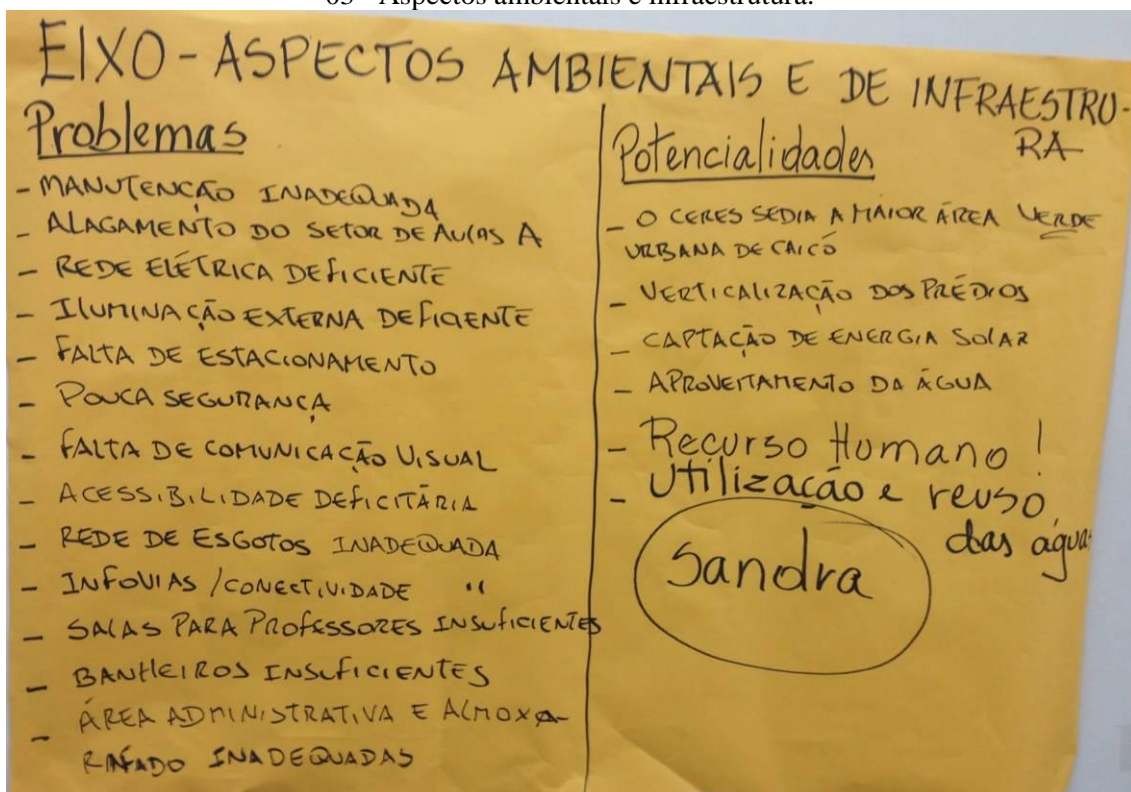 03 - Aspectos ambientais e infraestrutura.
EIXO - ASPECTOS AMBIENTAIS E DE INFRAESTRU-
RA
Problemas
- MANUTENÇÃO INADEQUADA
- ALAGAMENTO DO SETOR DE AULAS A
- REDE ELÉTRICA DEFICIENTE
- ILUMINAÇÃO EXTERNA DEFICIENTE
- FALTA DE ESTACIONAMENTO
- POUCA SEGURANÇA
- FALTA DE COMUNICAÇÃO VISUAL
- ACESSIBILIDADE DEFICITÁRIA
- REDE DE ESGOTOS INADEQUADA
- INFOVIAS / CONECTIVIDADE "
- SALAS PARA PROFESSORES INSUFICIENTES
- BANHEIROS INSUFICIENTES
- ÁREA ADMINISTRATIVA E ALMOXA-
RIFADO INADEQUADAS
Potencialidades
- O CERES SEDIA A MAIOR ÁREA VERDE
URBANA DE CAICÓ
- VERTICALIZAÇÃO DOS PRÉDIOS
- CAPTAÇÃO DE ENERGIA SOLAR
- APROVEITAMENTO DA ÁGUA
- Recurso Humano !
- Utilização e reuso
das águas
Sandra